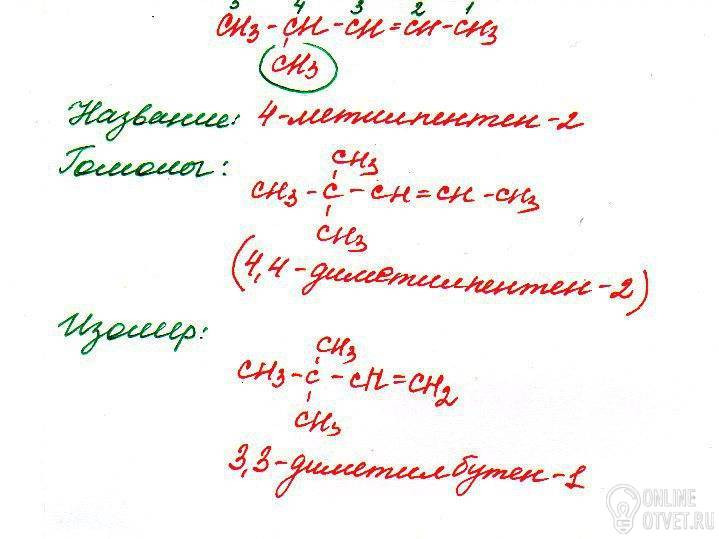 5 4 3 2 1
CH3 - CH - CH = CH - CH3
CH3
Название: 4-метилпентен-2
Гомологи:
CH3
CH3 - C - CH = CH - CH3
CH3
(4,4-диметилпентен-2)
Изомер:
CH3
CH3 - C - CH = CH2
CH3
3,3-диметилбутен-1
ONLINE
OTVET.RU